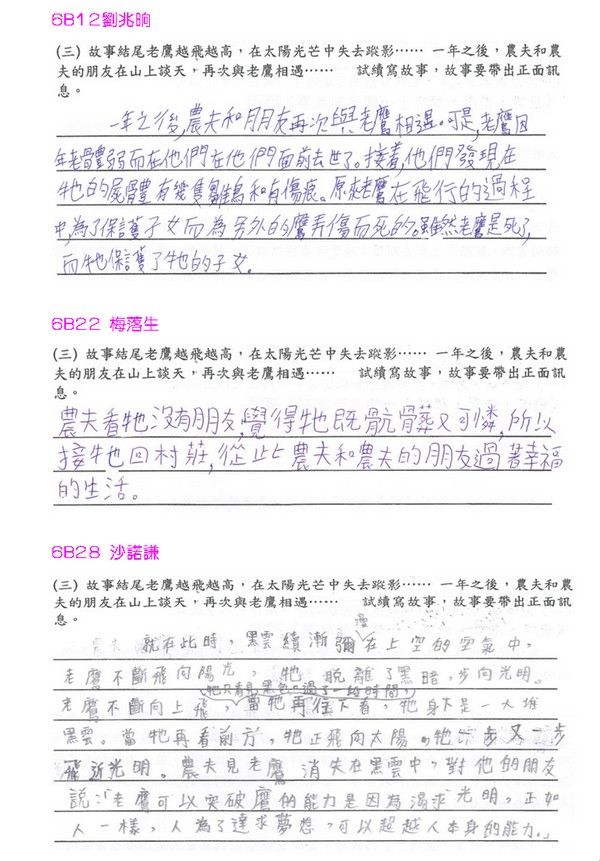 6B12劉兆晌
(三) 故事結尾老鷹越飛越高，在太陽光芒中失去蹤影…… 一年之後，農夫和農
夫的朋友在山上談天，再次與老鷹相遇…… 試續寫故事，故事要帶出正面訊
息。
一年之後,農夫和朋友再次與老鷹相遇。可是,老鷹因
年老體弱而在他們在他們面前去世了。接着,他們發現在
牠的屍體有幾隻雛鳥和有傷痕。原來老鷹在飛行的過程
中,為了保護子女而為另外的鷹弄傷而死的。雖然老鷹是死了,
而牠保護了牠的子女。
6B22 梅落生
(三) 故事結尾老鷹越飛越高，在太陽光芒中失去蹤影…… 一年之後，農夫和農
夫的朋友在山上談天，再次與老鷹相遇…… 試續寫故事，故事要帶出正面訊
息。
農夫看牠沒有朋友,覺得牠既骯髒又可憐,所以
接牠回村莊,從此農夫和農夫的朋友過著幸福
的生活。
6B28 沙諾謙
(三) 故事結尾老鷹越飛越高，在太陽光芒中失去蹤影…… 一年之後，農夫和農
夫的朋友在山上談天，再次與老鷹相遇…… 試續寫故事，故事要帶出正面訊
息。
就在此時，黑雲續漸彌漫在上空的空氣中，
老鷹不斷飛向陽光，牠脫離了黑暗，步向光明。
老鷹不斷向上飛，牠只看見黑色。過了一段時間，當牠再往下看，牠身下是一大堆
黑雲。當牠再看前方，牠正飛向太陽。牠一步又一步
飛近光明。農夫見老鷹消失在黑雲中，對他的朋友
說：「老鷹可以突破鷹的能力是因為渴求光明，正如
人一樣，人為了達求夢想，可以超越人本身的能力。」